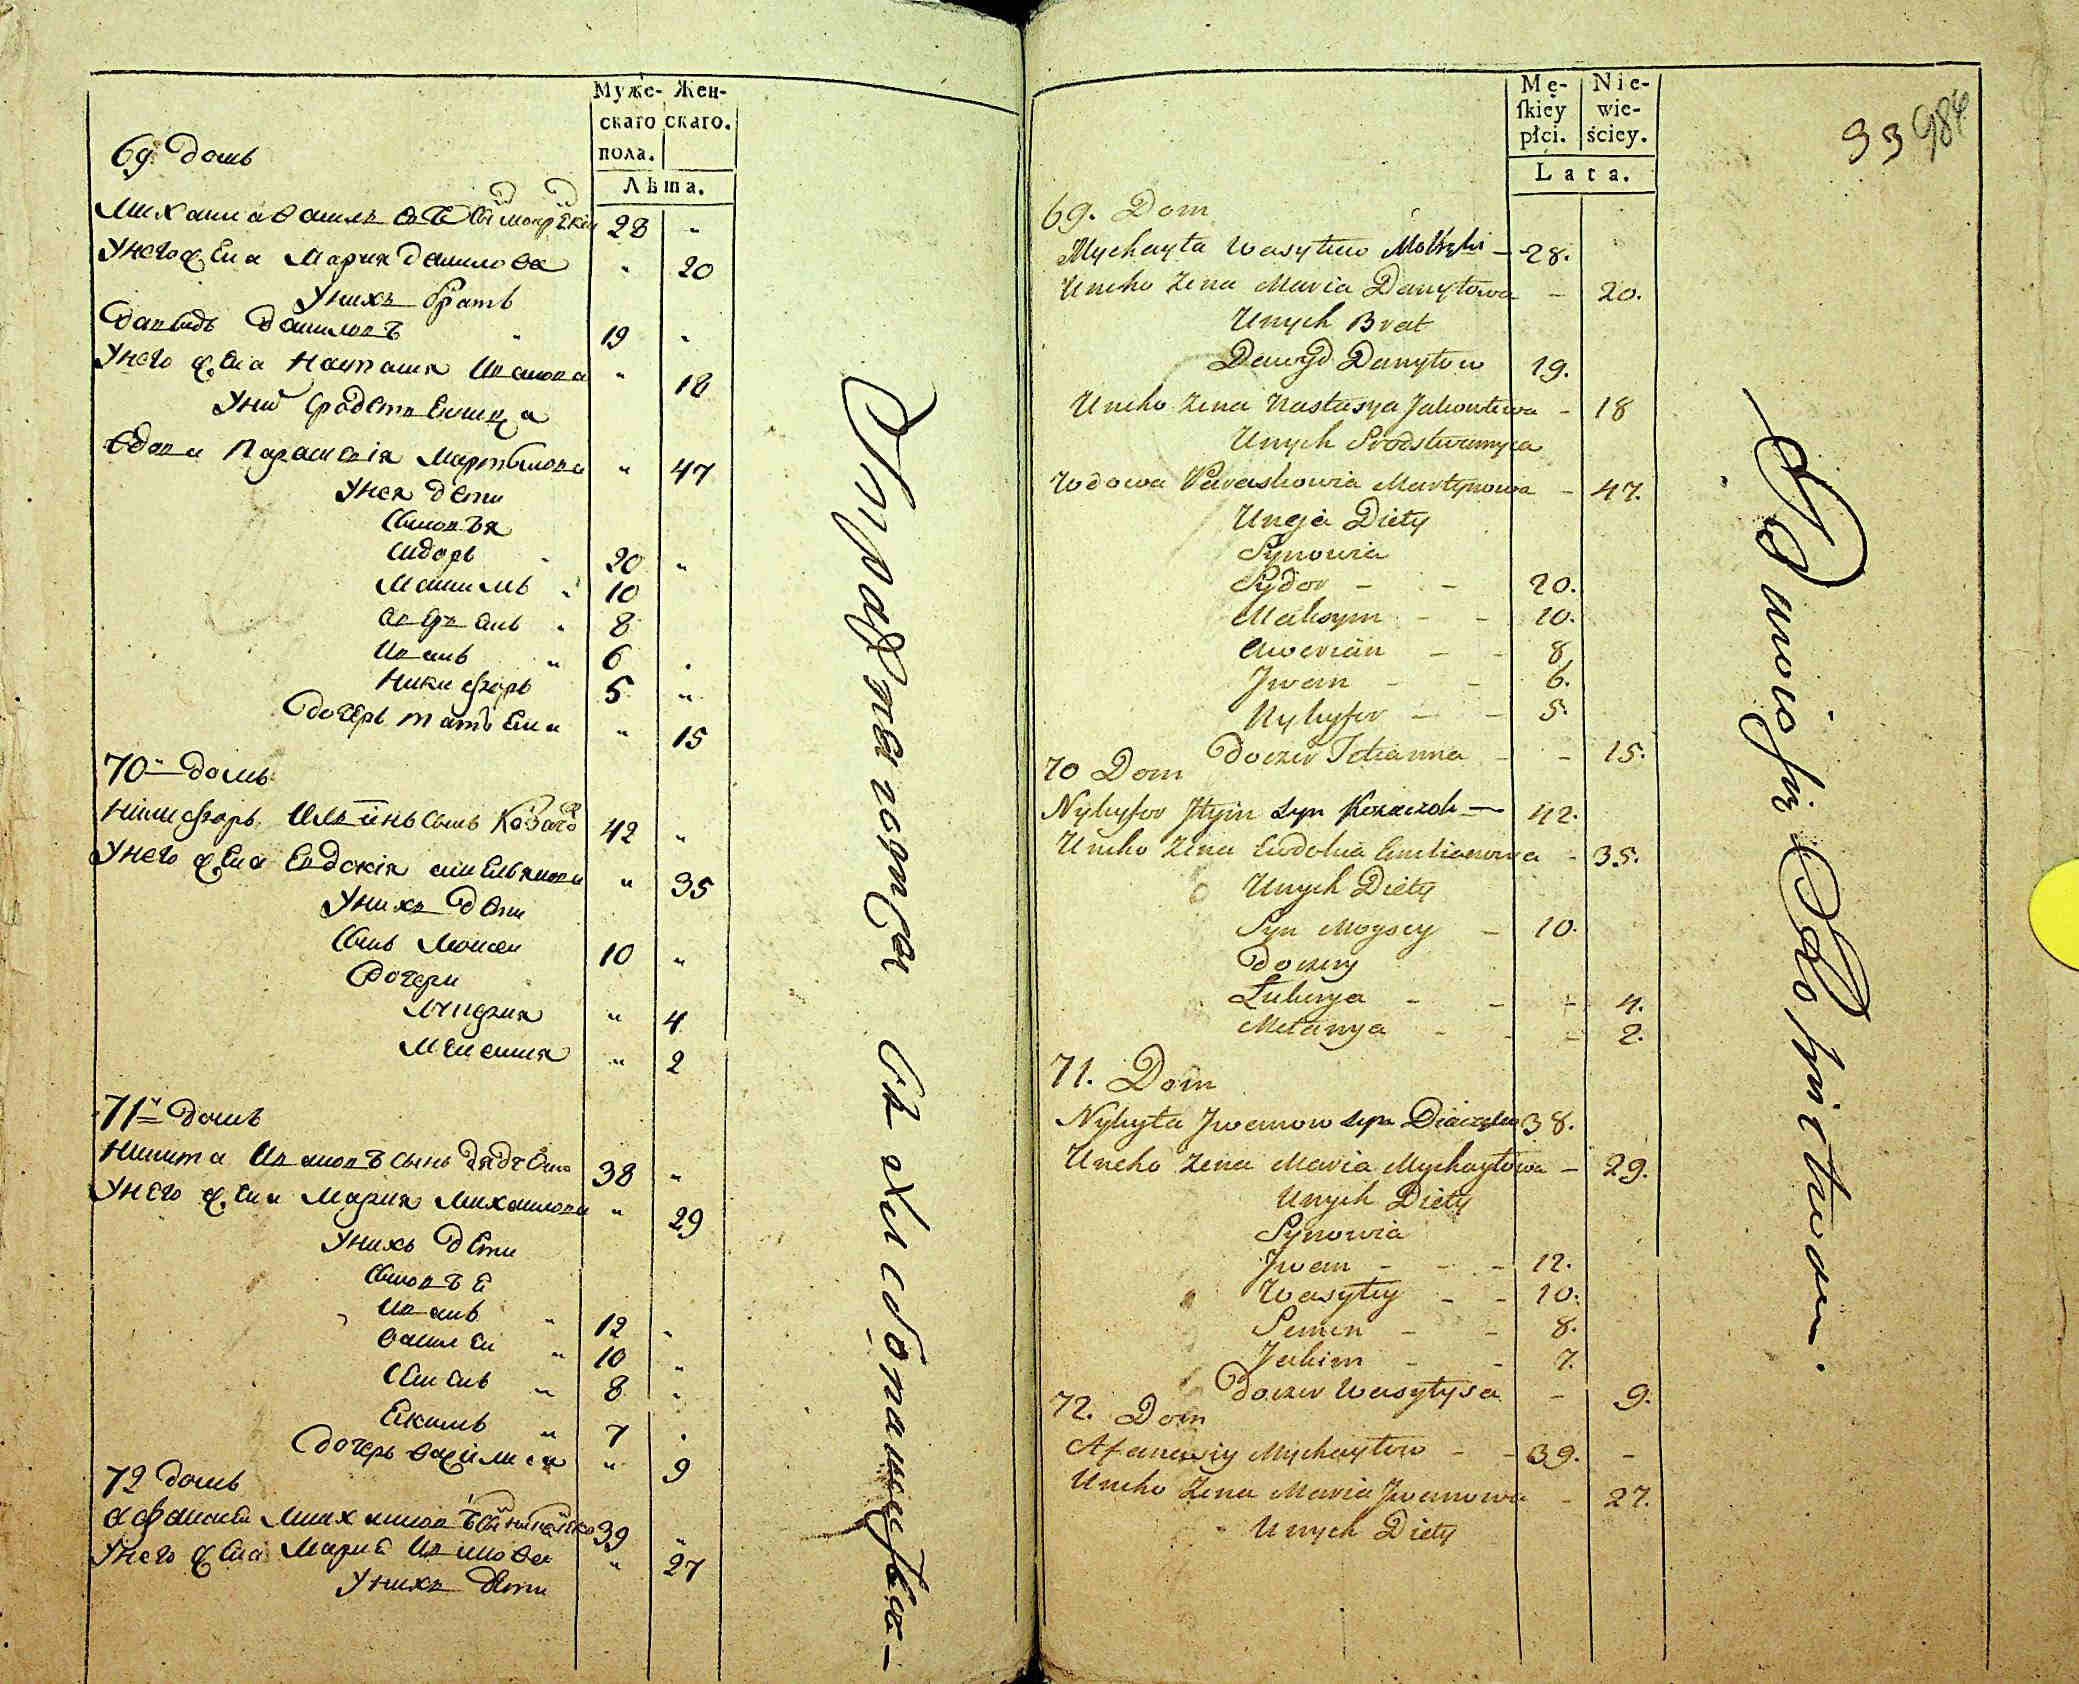 Муже-
скаго
пола.
Жен-
скаго.
Лѣта.
69 домъ
28 „
У него жена Мария Данилова „ 20
У нихъ братъ
Давыдъ Даниловъ 19 „
У него жена Настасия „ 18
У них сродственница
вдова Параскевія Мартынова „ 47
У нея дети
Сыновъя
Сидоръ 20 „
Максимъ „ 10
Аверьянъ „ 8
Иванъ „ 6
Никифоръ 5 „
дочерь татъяна „ 15
70й домъ
Никифоръ Ильинъ сынъ 42 „
У него жена Евдокія Емельянова „ 35
У нихъ дети
Сынъ Моисей 10 „
дочери
„ 4
Мелания „ 2
71й домъ
Никита Ивановъ сынъ 38 „
У него жена Мария Михайлова „ 29
У нихъ дети
Сыновъе
Иванъ „ 12
Василей „ 10
Семенъ „ 8
Екимъ „ 7
дочерь Василиса „ 9
72 домъ
Афанасей Михайловъ 39
У него жена Мария Иванова „ 27
У нихъ дети
Упражняются въ хлебопашествѣ
Mę-
skiey
płci.
Nie-
wie-
ściey.
Lata.
93 984
69. Dom
Mychayła Wasyłiw 28.
Uneho Żena Maria Danyłowa 20.
Unych Brat
Dawyd Danyłow 19.
Uneho Żena Nastasya Jakowlewa 18
Unych Srodstwennyca
Wdowa Paraskowia Martynowa 47.
Uneja Diety
Synowia
Sydor 20.
Maksym 10.
Awerian 8
Jwan 6.
Nykyfor 5.
Doczer Tetianna 15.
70 Dom
Nykyfor Jłyin syn Kozaczok 42.
Uneho Żena Ewdokia Emelianowa 35.
Unych Diety
Syn Moysey 10.
Doczery
Łukerya 4.
Melanya 2.
71. Dom
Nykyta Jwanow syn 38.
Uneho Żena Maria Mychayłowa 29.
Unych Diety
Synowia
Jwan 12.
Wasyley 10.
Semen 8.
Jakim 7.
Doczer Wasyłysa 9.
72. Dom
Afanasiy Mychayłow 39.
Uneho Żena Maria Jwanowa 27.
Unych Diety
Bawią się Rolnictwem.